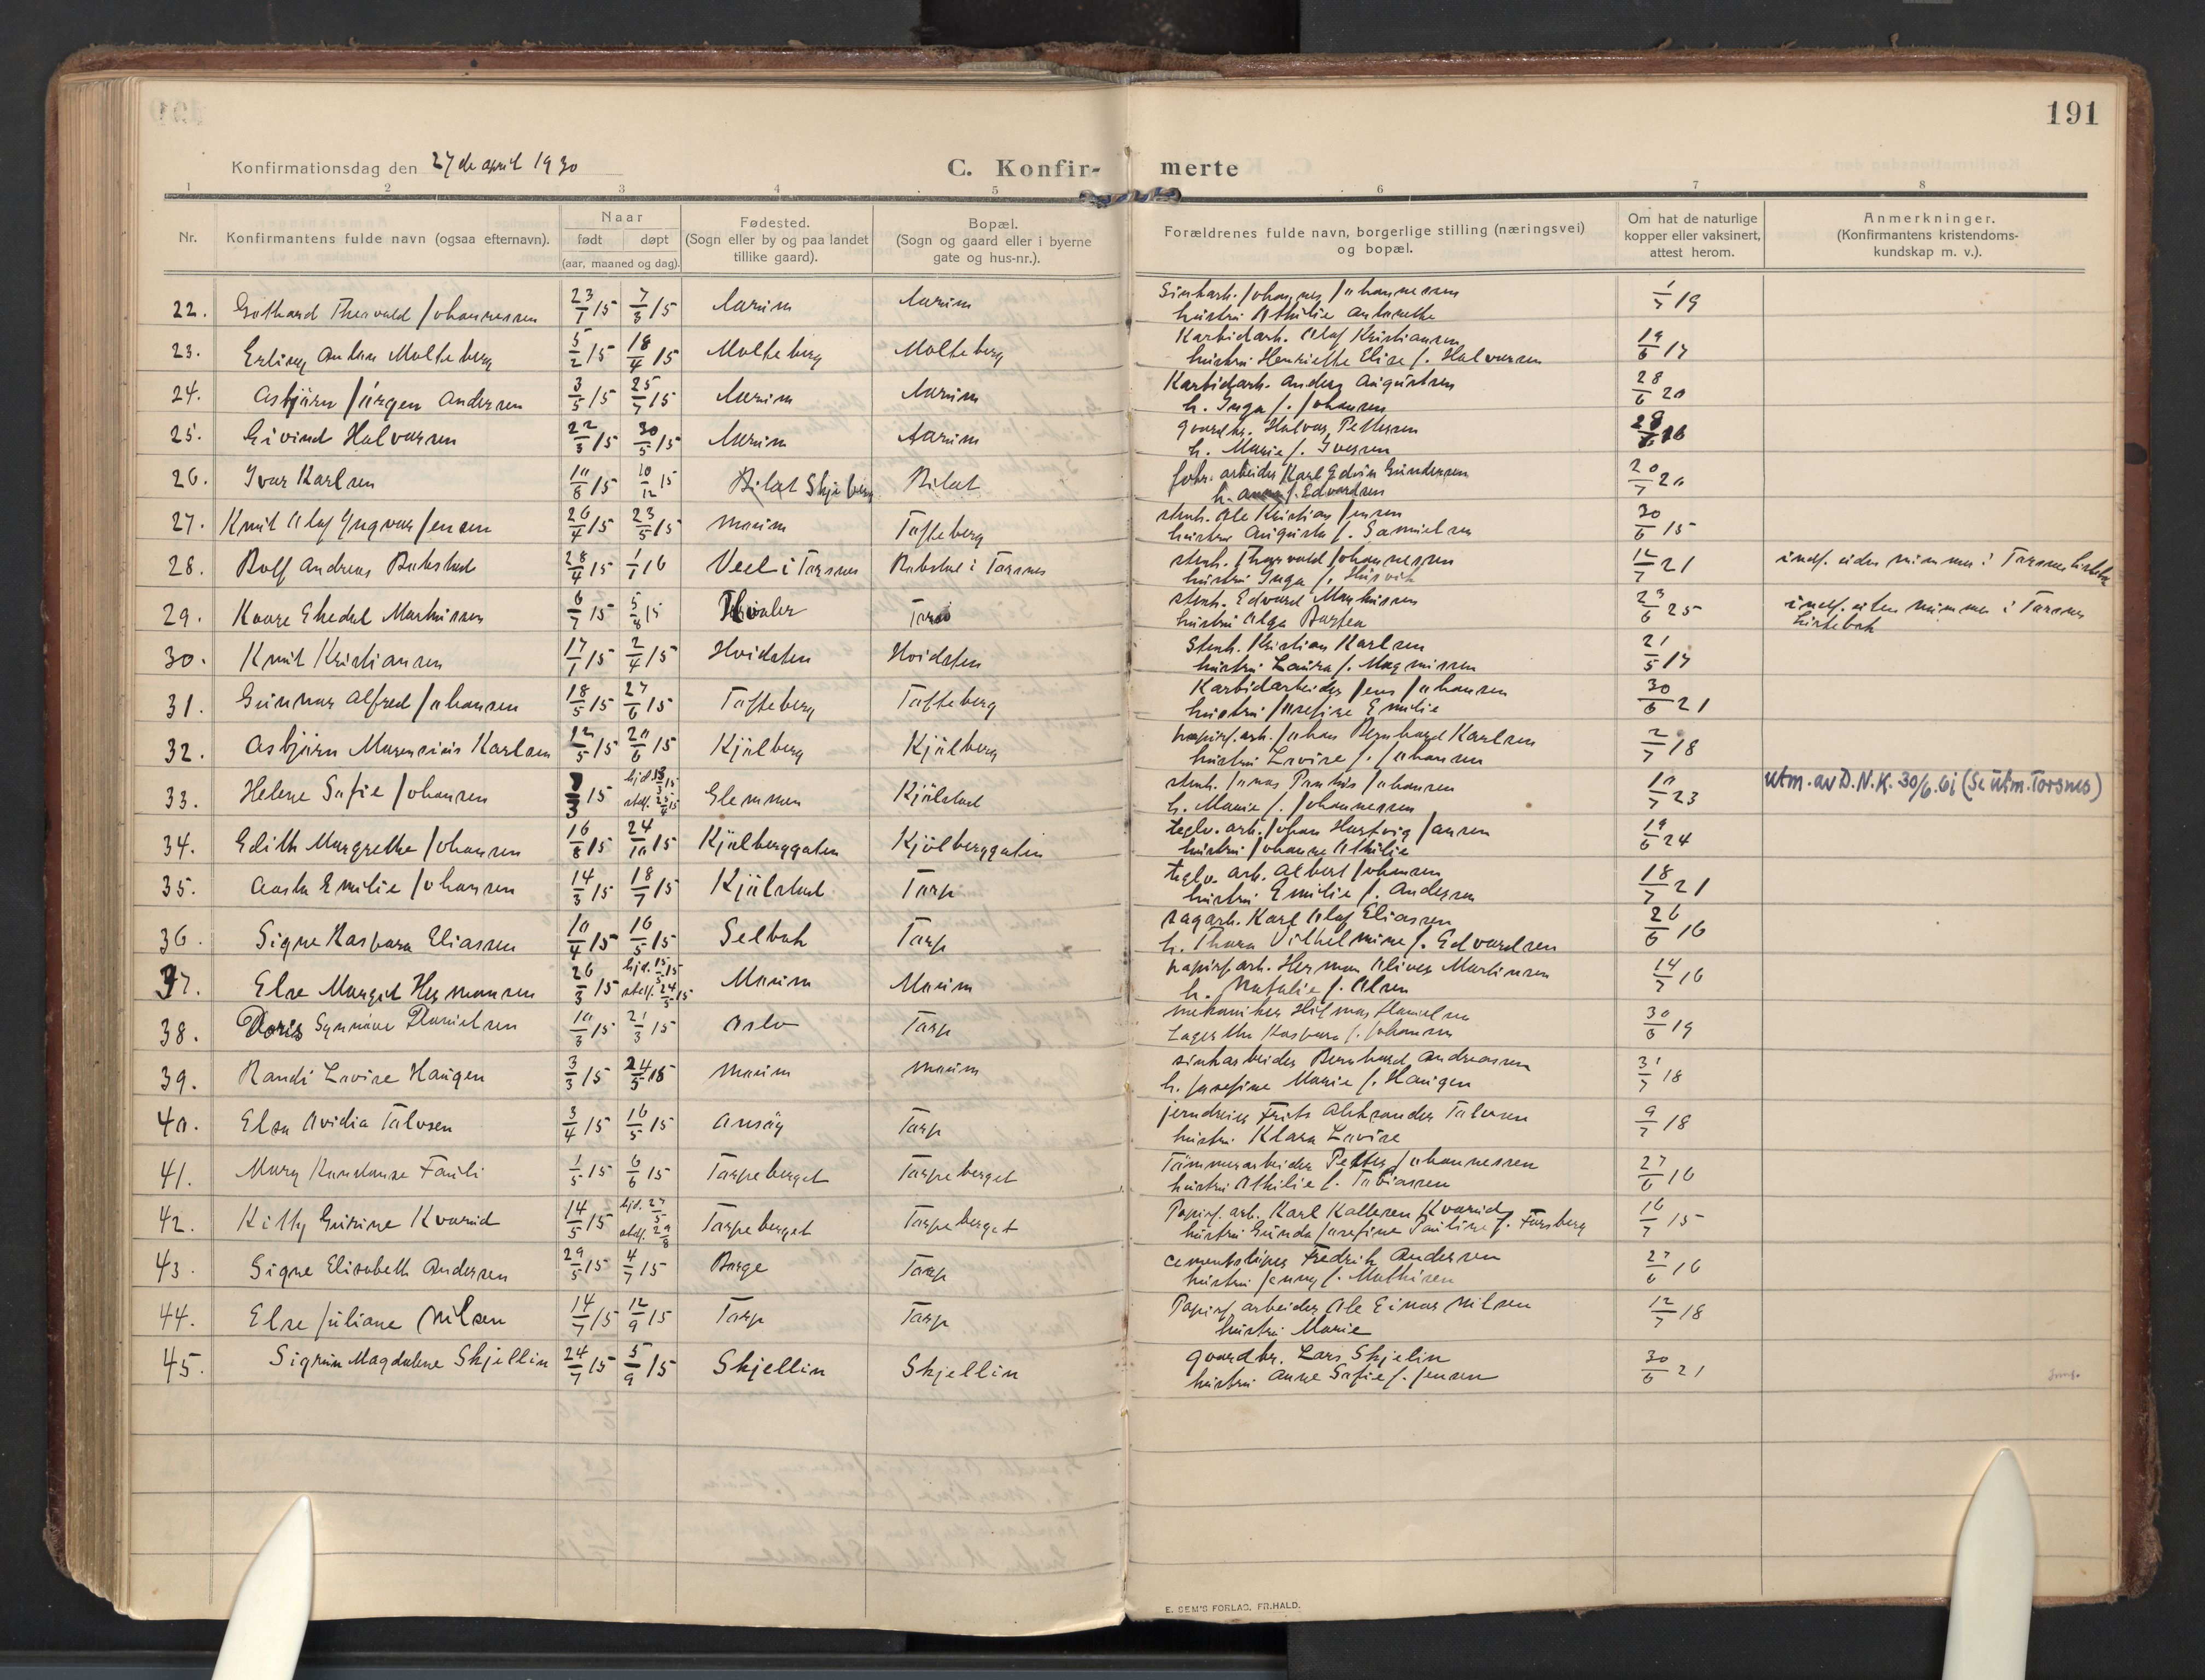 191
Konfirmationsdag den 27 de april 1930
C. Konfir- merte
1 2 3 4 5 6 7 8
Nr. Konfirmantens fulde navn (ogsaa efternavn). Naar født døpt (aar, maaned og dag). Fødested. (Sogn eller by og paa landet tillike gaard). Bopæl. (Sogn og gaard eller i byerne gate og hus-nr.). Forældrenes fulde navn, borgerlige stilling (næringsvei) og bopæl. Om hat de naturlige kopper eller vaksinert, attest herom. Anmerkninger. (Konfirmantens kristendoms-kundskap m. v.).
22. Gothard Thorvald Johannessen 23/1 15 7/3 15 Aarum Aarum Johannes Johannessen 19
hustru Othilie Antonette
23. Erling Anton Molteberg 5/2 15 18/4 15 Molteberg Molteberg Karbidarb. Olaf Kristiansen 19/6 17
hustru Henriette Elise f. Halvorsen
24. Asbjörn Jörgen Andersen 3/5 15 25/7 15 Aarum Aarum Karbidarb. Anders Augustsen 28/6 20
h. Inga f. Johansen
25. Eivind Halvorsen 22/3 15 30/5 15 Aarum Aarum gaardbr. Halvor Pettersen 28/6 16
h. Marie f. Iversen
26. Ivar Karlsen 10/8 15 10/12 15 Skjeberg fabr. arbeider Karl Edvin Gundersen 20/7 20
h. Anna f. Edvardsen
27. Knut Olaf Yngvar Jensen 26/4 15 23/5 15 Moum Tofteberg stenh. Ole Kristian Jensen 30/6 15
hustru Augusta f. Samuelsen
28. Rolf Andreas Rabstad 28/4 15 1/1 16 Veel i Torsnes Rabstad i Torsnes stenh. Thorvald Johannessen 12/7 21
hustru Inga f. Husvik
29. Kaare Ehedel Markussen 6/7 15 5/8 15 Hvaler Torp stenh. Edvard Markussen 23/6 25
hustru Olga Borgea
30. Knut Kristiansen 17/1 15 2/4 15 Hvidsten Hvidsten Stenh. Kristian Karlsen 21/5 17
hustru Laura f. Magnussen
31. Gunnar Alfred Johansen 18/5 15 27/6 15 Tofteberg Tofteberg Karbidarbeider Jens Johansen 30/6 21
hustru Josefine Emilie
32. Asbjörn Marensius Karlsen 12/5 15 20/6 15 Kjölberg Kjölberg papirf.arb. Johan Bernhard Karlsen 2/7 18
hustru Lovise f. Johansen
33. Helene Sofie Johansen 15 Glemmen Kjölstad stenh. Jonas Johansen 10/7 23 utm. av D.N.K. 30/6.61 (Se utm. Torsnes)
h. Marie f. Johannessen
34. Edith Margrethe Johansen 16/8 15 24/10 15 Kjölberggaten Kjölberggaten teglv. arb. Johan Hartvig Jansen 19/6 24
hustru Johanne Othilie
35. Aasta Emilie Johansen 14/3 15 18/7 15 Kjölstad Torp teglv. arb. Albert Johansen 18/7 21
hustru Emilie f. Andersen
36. Signe Kaspara Eliassen 10/4 15 16/5 15 Selbak Torp sagarb. Karl Olaf Eliassen 26/6 16
h. Thora Vilhelmine f. Edvardsen
37. Else Margit Hermansen 26/3 15 Moum Moum papirf.arb. Herman Oliver Martinsen 14/7 16
h. Natalie f. Olsen
38. Doris Synnöve Danielsen 10/3 15 21/3 15 Oslo Torp mekaniker Hilmar Danielsen 30/6 19
Lagertha Kaspara f. Johansen
39. Randi Lovise Haugen 3/3 15 24/5 15 Moum Moum Bernhard Andreassen 31/7 18
h. Josefine Marie f. Haugen
40. Elsa Ovidia Talvsen 3/4 15 16/5 15 Torp jerndreier Frits Aleksander 9/7 18
hustru Klara Lovise
41. Mary Konstanse Fauli 1/5 15 6/6 15 Torpeberget Torpeberget Tömmerarbeider Petter Johannessen 27/6 16
hustru Othilie f. Tobiassen
42. Kitty Gurine Kvarud 14/5 15 Torpeberget Torpeberget Papirf. arb. Karl Kallesen Kvarud 16/7 15
hustru Gunda Josefine Pauline f. Forsberg
43. Signe Elisabeth Andersen 29/5 15 4/7 15 Borge Torp cementstöper Fredrik Andersen 27/6 16
hustru Jenny f. Mathisen
44. Else Juliane Nilsen 14/7 15 12/9 15 Torp Torp Papirf. arbeider Ole Einar Nilsen 12/7 18
hustru Marie
45. Sigrun Magdalene Skjellin 24/7 15 5/9 15 Skjellin Skjellin gaardbr. Lars Skjelin 30/6 21
hustru Anne Sofie f. Jensen
E. SEM'S FORLAG. FR.HALD.